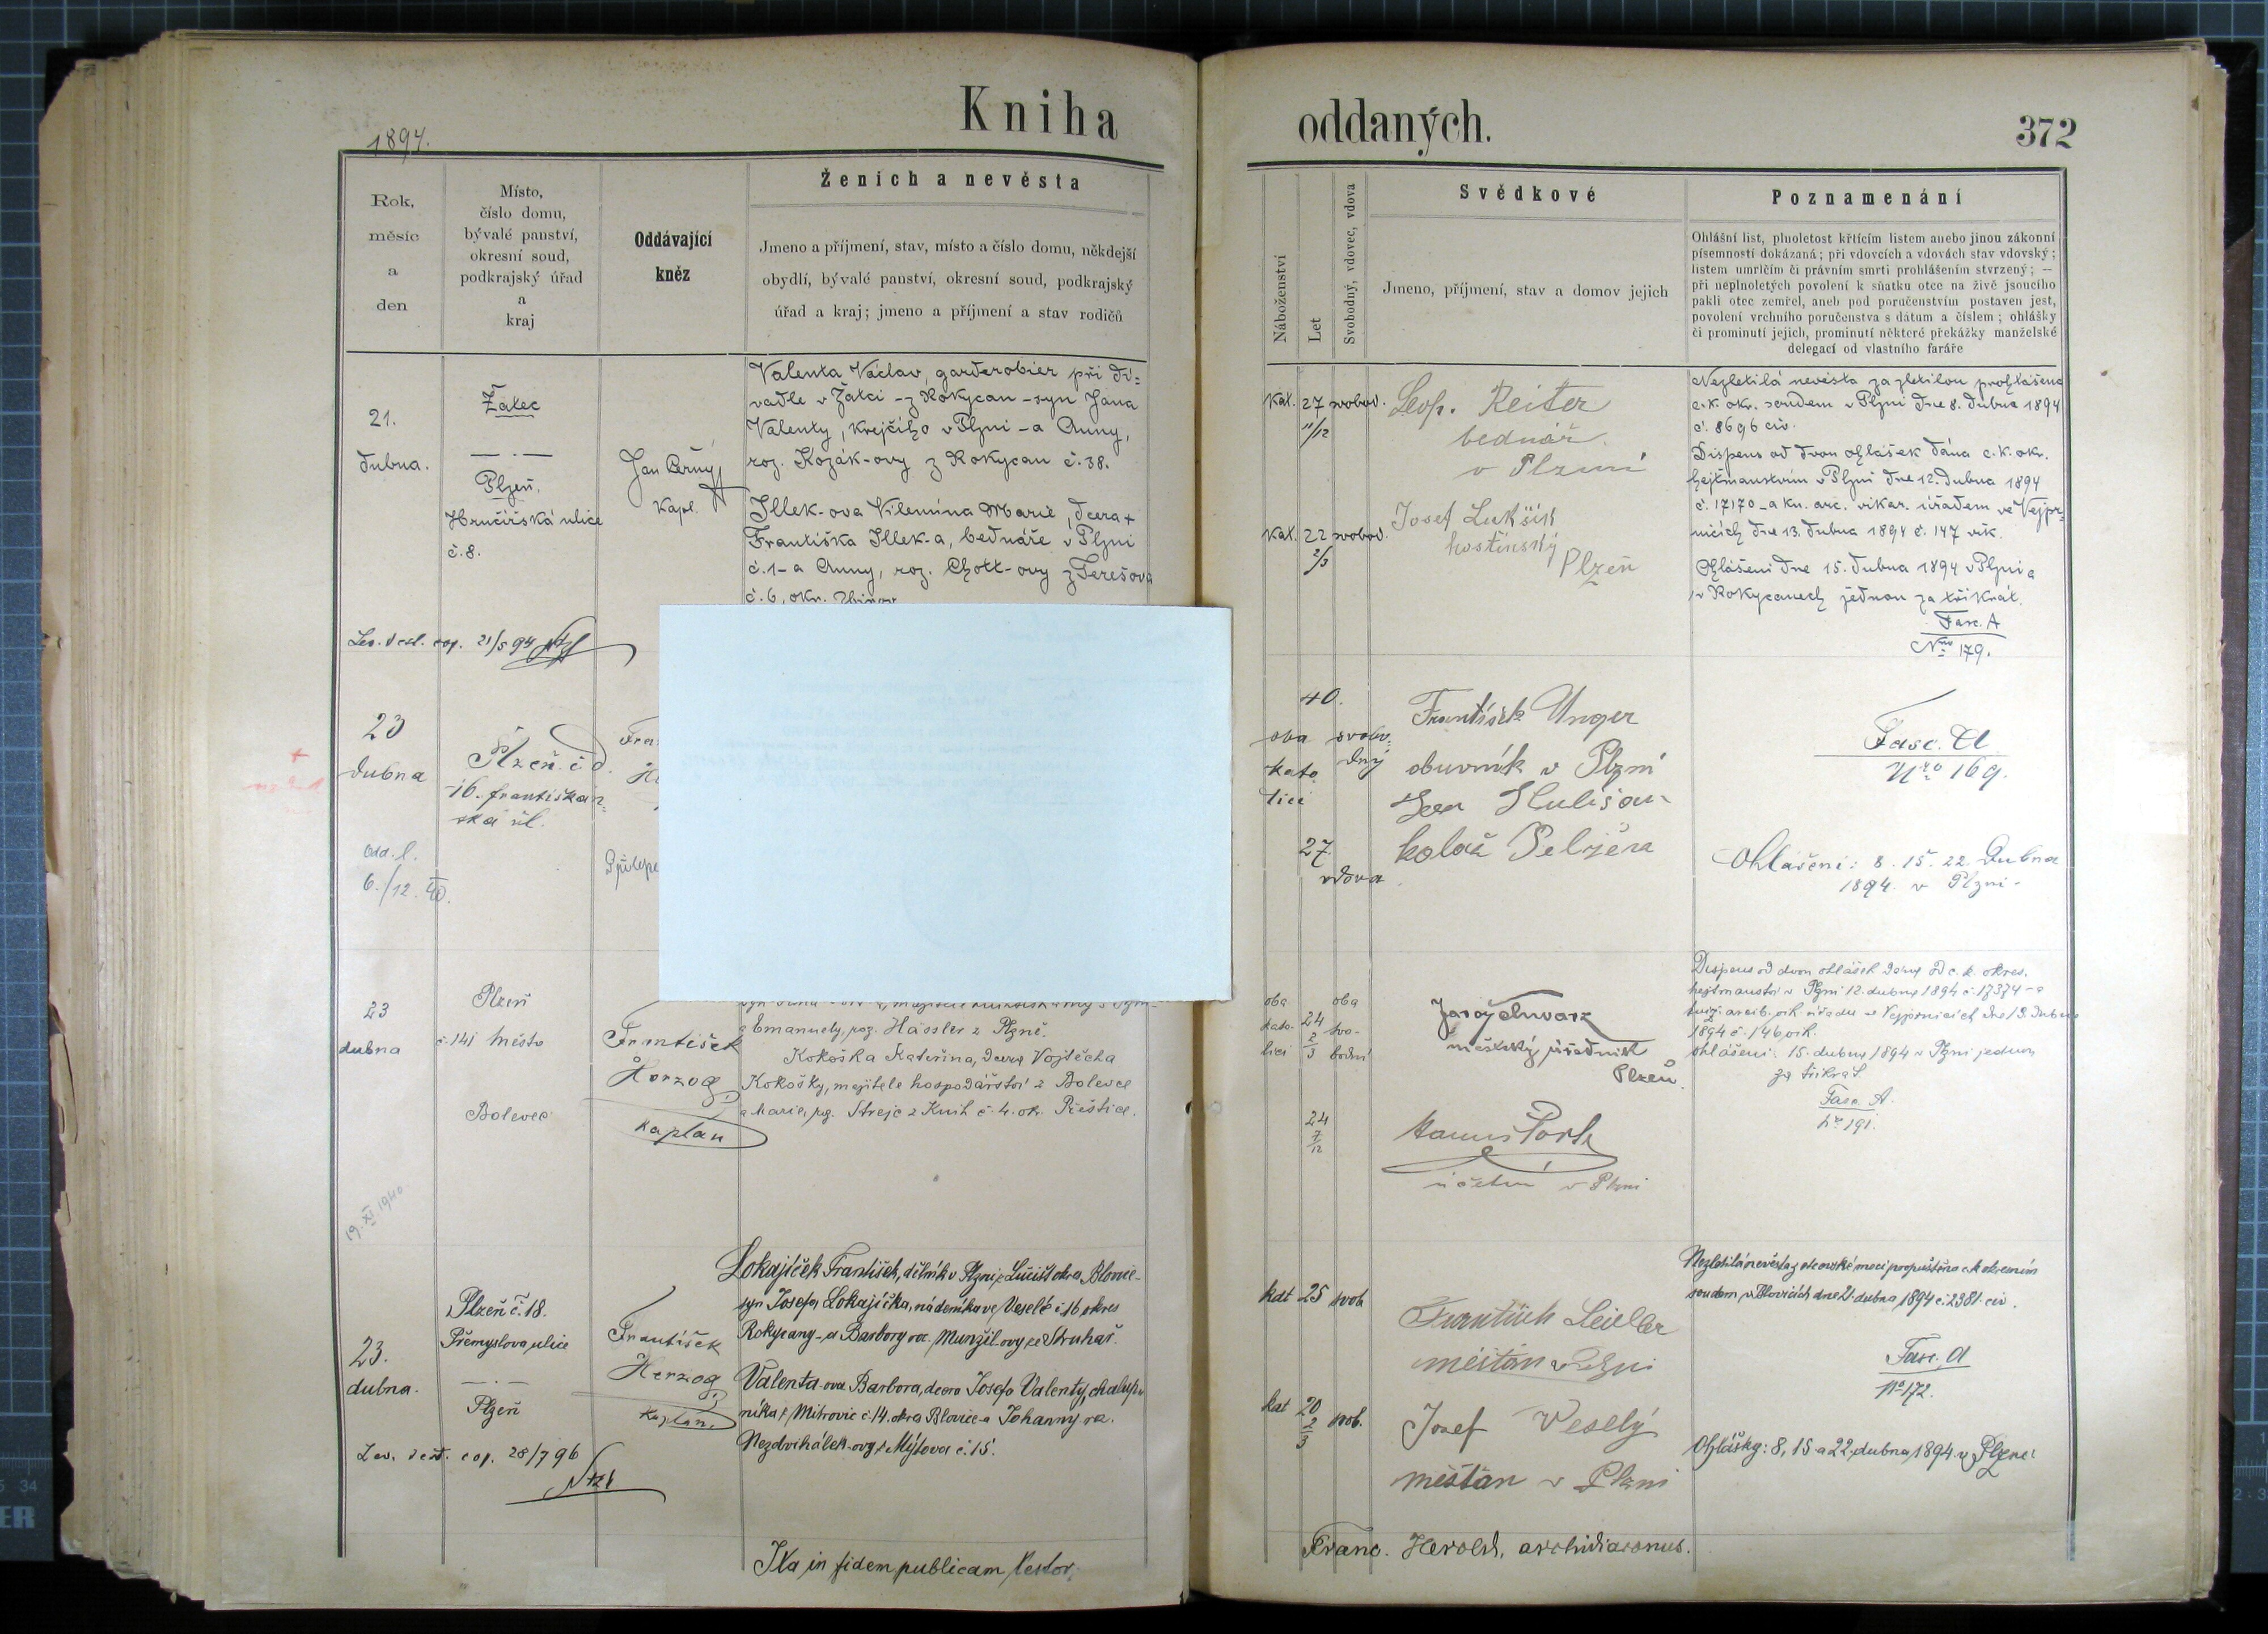 1894.
Kniha
oddaných.
372
Rok,
měsíc
a
den
Místo,
číslo domu,
bývalé panství,
okresní soud,
podkrajský úřad
a
kraj
Oddávající
kněz
Ženich a nevěsta
Jmeno a příjmení, stav, místo a číslo domu, někdejší
obydlí, bývalé panství, okresní soud, podkrajský
úřad a kraj; jmeno a příjmení a stav rodičů
Náboženství
Let
Svobodný, vdovec, vdova
Svědkové
Jmeno, příjmení, stav a domov jejich
Poznamenání
Ohlášní list, plnoletost křticím listem anebo jinou zákonní
písemností dokázaná; při vdovcích a vdovách stav vdovský;
listem umrlčím či právním smrti prohlášením stvrzený; —
při neplnoletých povolení k sňatku otce na živě jsoucího
pakli otec zemřel, aneb pod poručenstvím postaven jest,
povolení vrchního poručenstva s dátum a číslem; ohlášky
či prominutí jejich, prominutí některé překážky manželské
delegací od vlastního faráře
21.
dubna.
Žatec
Plzeň.
Hrnčířská ulice
č. 8.
Jan Černý
Kapl.
Valenta Václav, garderobier při di=
vadle v Žatci - z Rokycan - syn Jana
Valenty, krejčího v Plzni - a Anny,
roz. Kozák-ovy z Rokycan č. 38.
Illek-ova Vilemína Marie, dcera +
Františka Illek-a, bednáře v Plzni
č. 1 - a Anny, roz. Chott-ovy z Terešova
č. 6, okr. Zbirov
21/5 94
Kat. 27 svobod.
11/12
Kat. 22 svobod.
2/3
Leop. Reiter
bednář
v Plzni
Josef Lukšík
hostinský
Plzeň
Nezletilá nevěsta za zletilou prohlášena
c. k. okr. soudem v Plzni dne 8. dubna 1894
č. 8696 civ.
Dispens od dvou ohlášek dána c. k. okr.
hejtmanstvím v Plzni dne 12. dubna 1894
č. 17170 - a kn. arc. vikar. úřadem ve Vejpr=
nicích dne 13. dubna 1894 č. 147 vik.
Ohlášeni dne 15. dubna 1894 v Plzni a
v Rokycanech jednou za třikrát.
Fasc. A
Nro 179.
23
dubna
Plzeň č. d.
16. františkán=
ská ul.
Odd. l.
6./12.
40.
oba svobo=
kato dný
líci
27
vdova
František Unger
obuvník v Plzni
kolář
Fasc. A
Nro 169.
Ohlášeni: 8. 15. 22. Dubna
1894. v Plzni -
23
dubna
Plzeň
č. 141 město
Bolevec
František
Herzog
kaplan
a Emanuely, roz. Hässler z Plzně.
Kokoška Kateřina, dcera Vojtěcha
Kokošky, majitele hospodářství z Bolevce
a Marie, roz. Strejc z Knih č. 4. ok. Přeštice.
19. XI. 1940
oba oba
kato- 24 svo-
líci 2/3 bodní
24
7/12
městský úředník
Plzeň.
účetní v Plzni
Dispens od dvou ohlášek daný od c. k. okres.
hejtmanství v Plzni 12. dubna 1894 č. 17374 - a
kníž. arcib. vik. úřadu ve Vejprnicích dne 13. dubna
1894 č. 146 vik.
ohlášeni: 15. dubna 1894 v Plzni jednou
za třikrát.
Fasc. A.
Nro 191.
23.
dubna.
Plzeň č. 18.
Přemyslova ulice
Plzeň
František
Herzog
Kaplan.
Lokajíček František, dělník v Plzni, z Lučišť okres Blovice -
syn Josefa Lokajíčka, nádeníka ve Veselé č. 16 okres
Rokycany - a Barbory roz. Munžil-ovy ze Struhař.
Valenta-ova Barbora, dcera Josefa Valenty, chalup=
níka z Mitrovic č. 14. okres Blovice - a Johanny roz.
Nezdvihálek-ovy z Mýtova č. 15.
28/7 96
kat 25 svob
kat 20 svob.
2/3
František
měšťan v Plzni
Josef Veselý
měšťan v Plzni
Nezletilá nevěsta z otcovské moci propuštěna c. k. okresním
soudem v Blovicích dne 21. dubna 1894 č. 2381. civ.
Fasc. A
Nro 172.
Ohlášky: 8, 15 a 22. dubna 1894. v Plzni
Ita in fidem publicam testor:
Franc. Herold, archidiaconus.